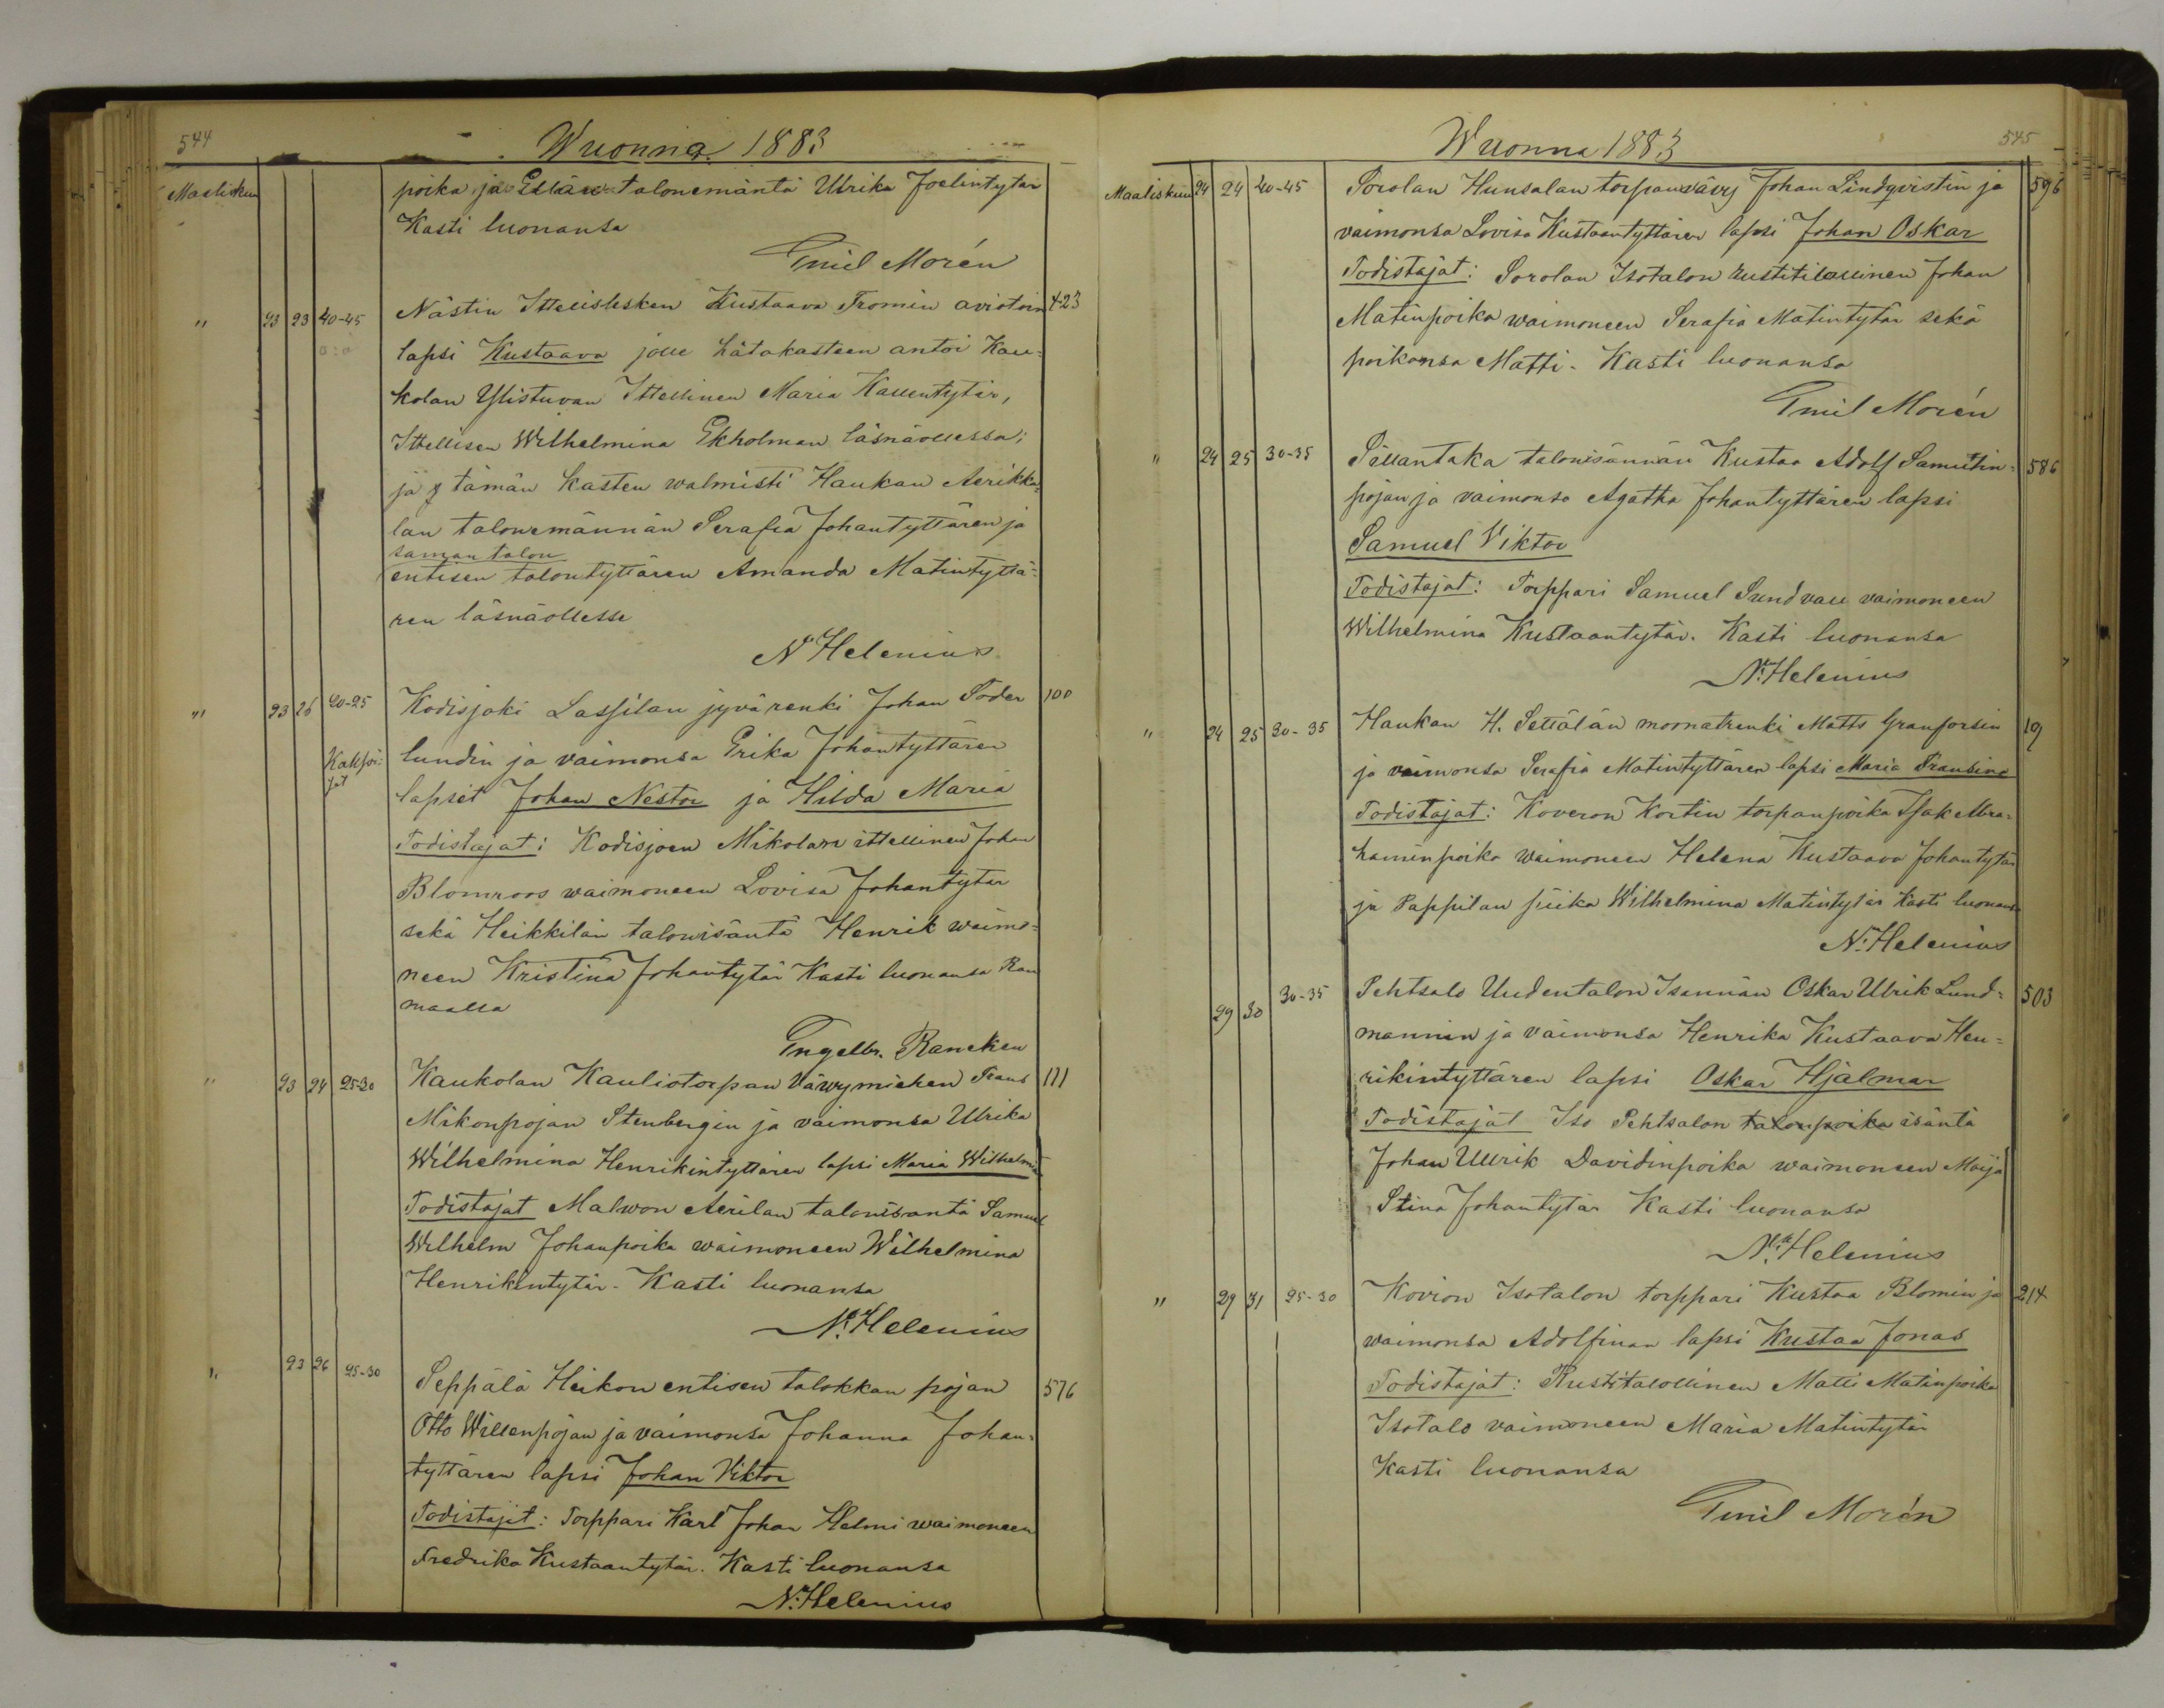 544
Wuonna 1883
Maaliskuu
poika ja talonemäntä Ulrika Joelintytär
Kasti luonansa
Emil Morén
" 23 23 40-45 Nästin Ittellislesken Kustaava Fromin aviotoin 423
lapsi Kustaava jolle hätäkasteen antoi Kau-
kolan Ylistuvan Ittellinen Maria Kallentytär,
Ittellisen Wilhelmina Ekholman läsnäollessa;
ja tämän kasteen walmisti Haukan Aerikka-
lan talonemännän Serafia Johantyttären ja
saman talon
entisen talontyttären Amanda Matintyttä-
ren läsnäollesse
N Helenius
" 23 26 20-25 Kodisjoki Lassilan jyvärenki Johan Söder 100
Kaksoi-
jat
lundin ja vaimonsa Erika Johantyttären
lapset Johan Nestor ja Hilda Maria
Todistajat: Kodisjoen Mikolam ittellinen Johan
Blomroos waimoneen Lovisa Johantytär
sekä Heikkilän talonisäntä Henrik waimo-
neen Kristina Johantytär Kasti luonansa Rau
maalla
Engelbr. Rancken
" 23 24 25-30 Kaukolan Kauliotorpan Väwymiehen Frans 111
Mikonpojan Stenbergin ja vaimonsa Ulrika
Wilhelmina Henrikintyttären lapsi Maria Wilhelmi
Todistajat Malwon Aerilan talonisäntä Samuel
Wilhelm Johanpoika waimoneen Wilhelmina
Henrikintytär. Kasti luonansa
N. Helenius
" 23 26 25-30 Seppälä Heikon entisen talokkan pojan 576
Otto Willenpojan ja vaimonsa Johanna Johan-
tyttären lapsi Johan Viktor
Todistajat: Torppari Karl Johan Helmi waimoneen
Fredrika Kustaantytär. Kasti luonansa
N. Helenius
545
Wuonna 1883
Maaliskuu 24 24 40-45 Sorolan Hunsalan torpanvävy Johan Lindqvistin ja 596
vaimonsa Lovisa Kustaantyttären lapsi Johan Oskar
Todistajat: Sorolan Isotalon rustitilallinen Johan
Matinpoika waimoneen Serafia Matintytär sekä
poikansa Matti. Kasti luonansa
Emil Morén
" 24 25 30-35 Sillantaka talonisännän Kustaa Adolf Samulin- 586
pojan ja vaimonsa Agatha Johantyttären lapsi
Samuel Viktor
Todistajat: Torppari Samuel Sundvall vaimoneen
Wilhelmina Kustaantytär. Kasti luonansa
N. Helenius
" 24 25 30-35 Haukan H. Settälän moonatrenki Matts Granforsin 19
ja vaimonsa Serafia Matintyttären lapsi Maria Fransina
Todistajat: Koveron Kortin torpanpoika Isak Abra-
hamin poika waimoneen Helena Kustaava Johantytär
ja Pappilan piika Wilhelmina Matintytär Kasti luonansa
N. Helenius
29 30 30-35 Pehtsalo Uudentalon Isännän Oskar Ulrik Lund- 503
mannin ja vaimonsa Henrika Kustaava Hen-
rikintyttären lapsi Oskar Hjalmar
Todistajat Iso Pehtsalon talonpoika isäntä
Johan Ullrik Davidinpoika waimoneen Maija
Stina Johantytär Kasti luonansa
N. Helenius
" 29 31 25-30 Kovion Isotalon torppari Kustaa Blomin ja 214
waimonsa Adolfinan lapsi Kustaa Jonas
Todistajat: Rustitalollinen Matti Matinpoika
Isotalo vaimoneen Maria Matintytär
Kasti luonansa
Emil Morén